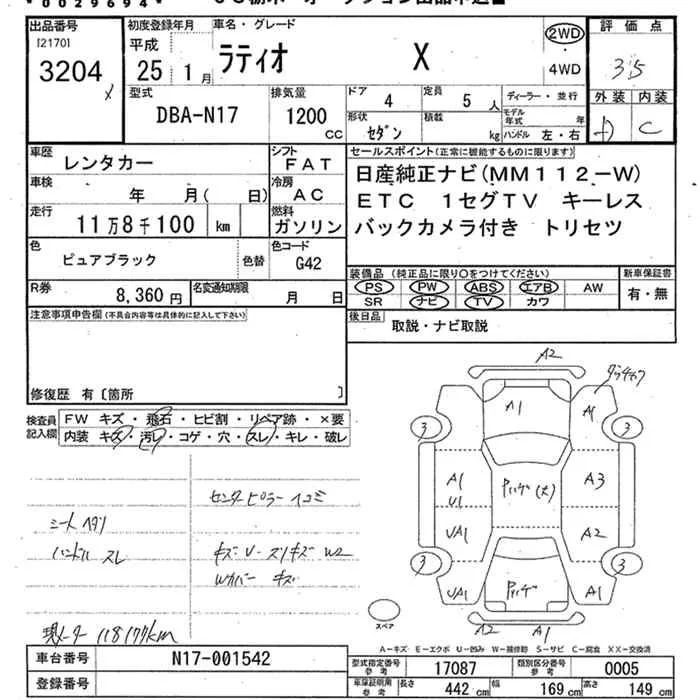 *0029694*
出品番号 初度登録年月 車名・グレード 2WD 評価点
[2170] 平成
3204 25 1月 ラティオ X 4WD 3.5
型式 排気量 ドア 定員 ディーラー・並行 外装 内装
DBA-N17 1200 CC 4 5人 モデル年式 年
形状 積載 C
セダン kg ハンドル 左・右
車歴 シフト セールスポイント(正常に機能するものに限ります)
レンタカー FAT 日産純正ナビ(MM112-W)
車検 年 月( 日) 冷房 AC ETC 1セグTV キーレス
走行 11万8千100 km 燃料 ガソリン バックカメラ付き トリセツ
色 ピュアブラック 色替 色コード G42
装備品(純正品に限り○をつけてください) 新車保証書
R券 8,360円 名変通知期限 月 日 PS PW ABS エアB AW 有・無
SR ナビ TV カワ
注意事項申告欄(不具合内容等は具体的に記入して下さい) 後日品 取説・ナビ取説
修復歴 有〔箇所 〕
検査員記入欄 FW キズ・飛石・ヒビ割・リペア跡・×要
内装 キズ・汚レ・コゲ・穴・スレ・キレ・破レ
A2
A1 A1
3 3
A1 U1 A3
UA1 A2
3 3
UA1 A1
スペア A2 A1
センターピラー
シートヘタリ
ハンドル スレ
現メーター 118177km
A-キズ E-エクボ U-凹み W-補修跡 S-サビ C-腐食 XX-交換済
車台番号 N17-001542 型式指定番号 参考 17087 類別区分番号 参考 0005
登録番号 車庫証明用 参考 長さ 442 cm 幅 169 cm 高さ 149 cm